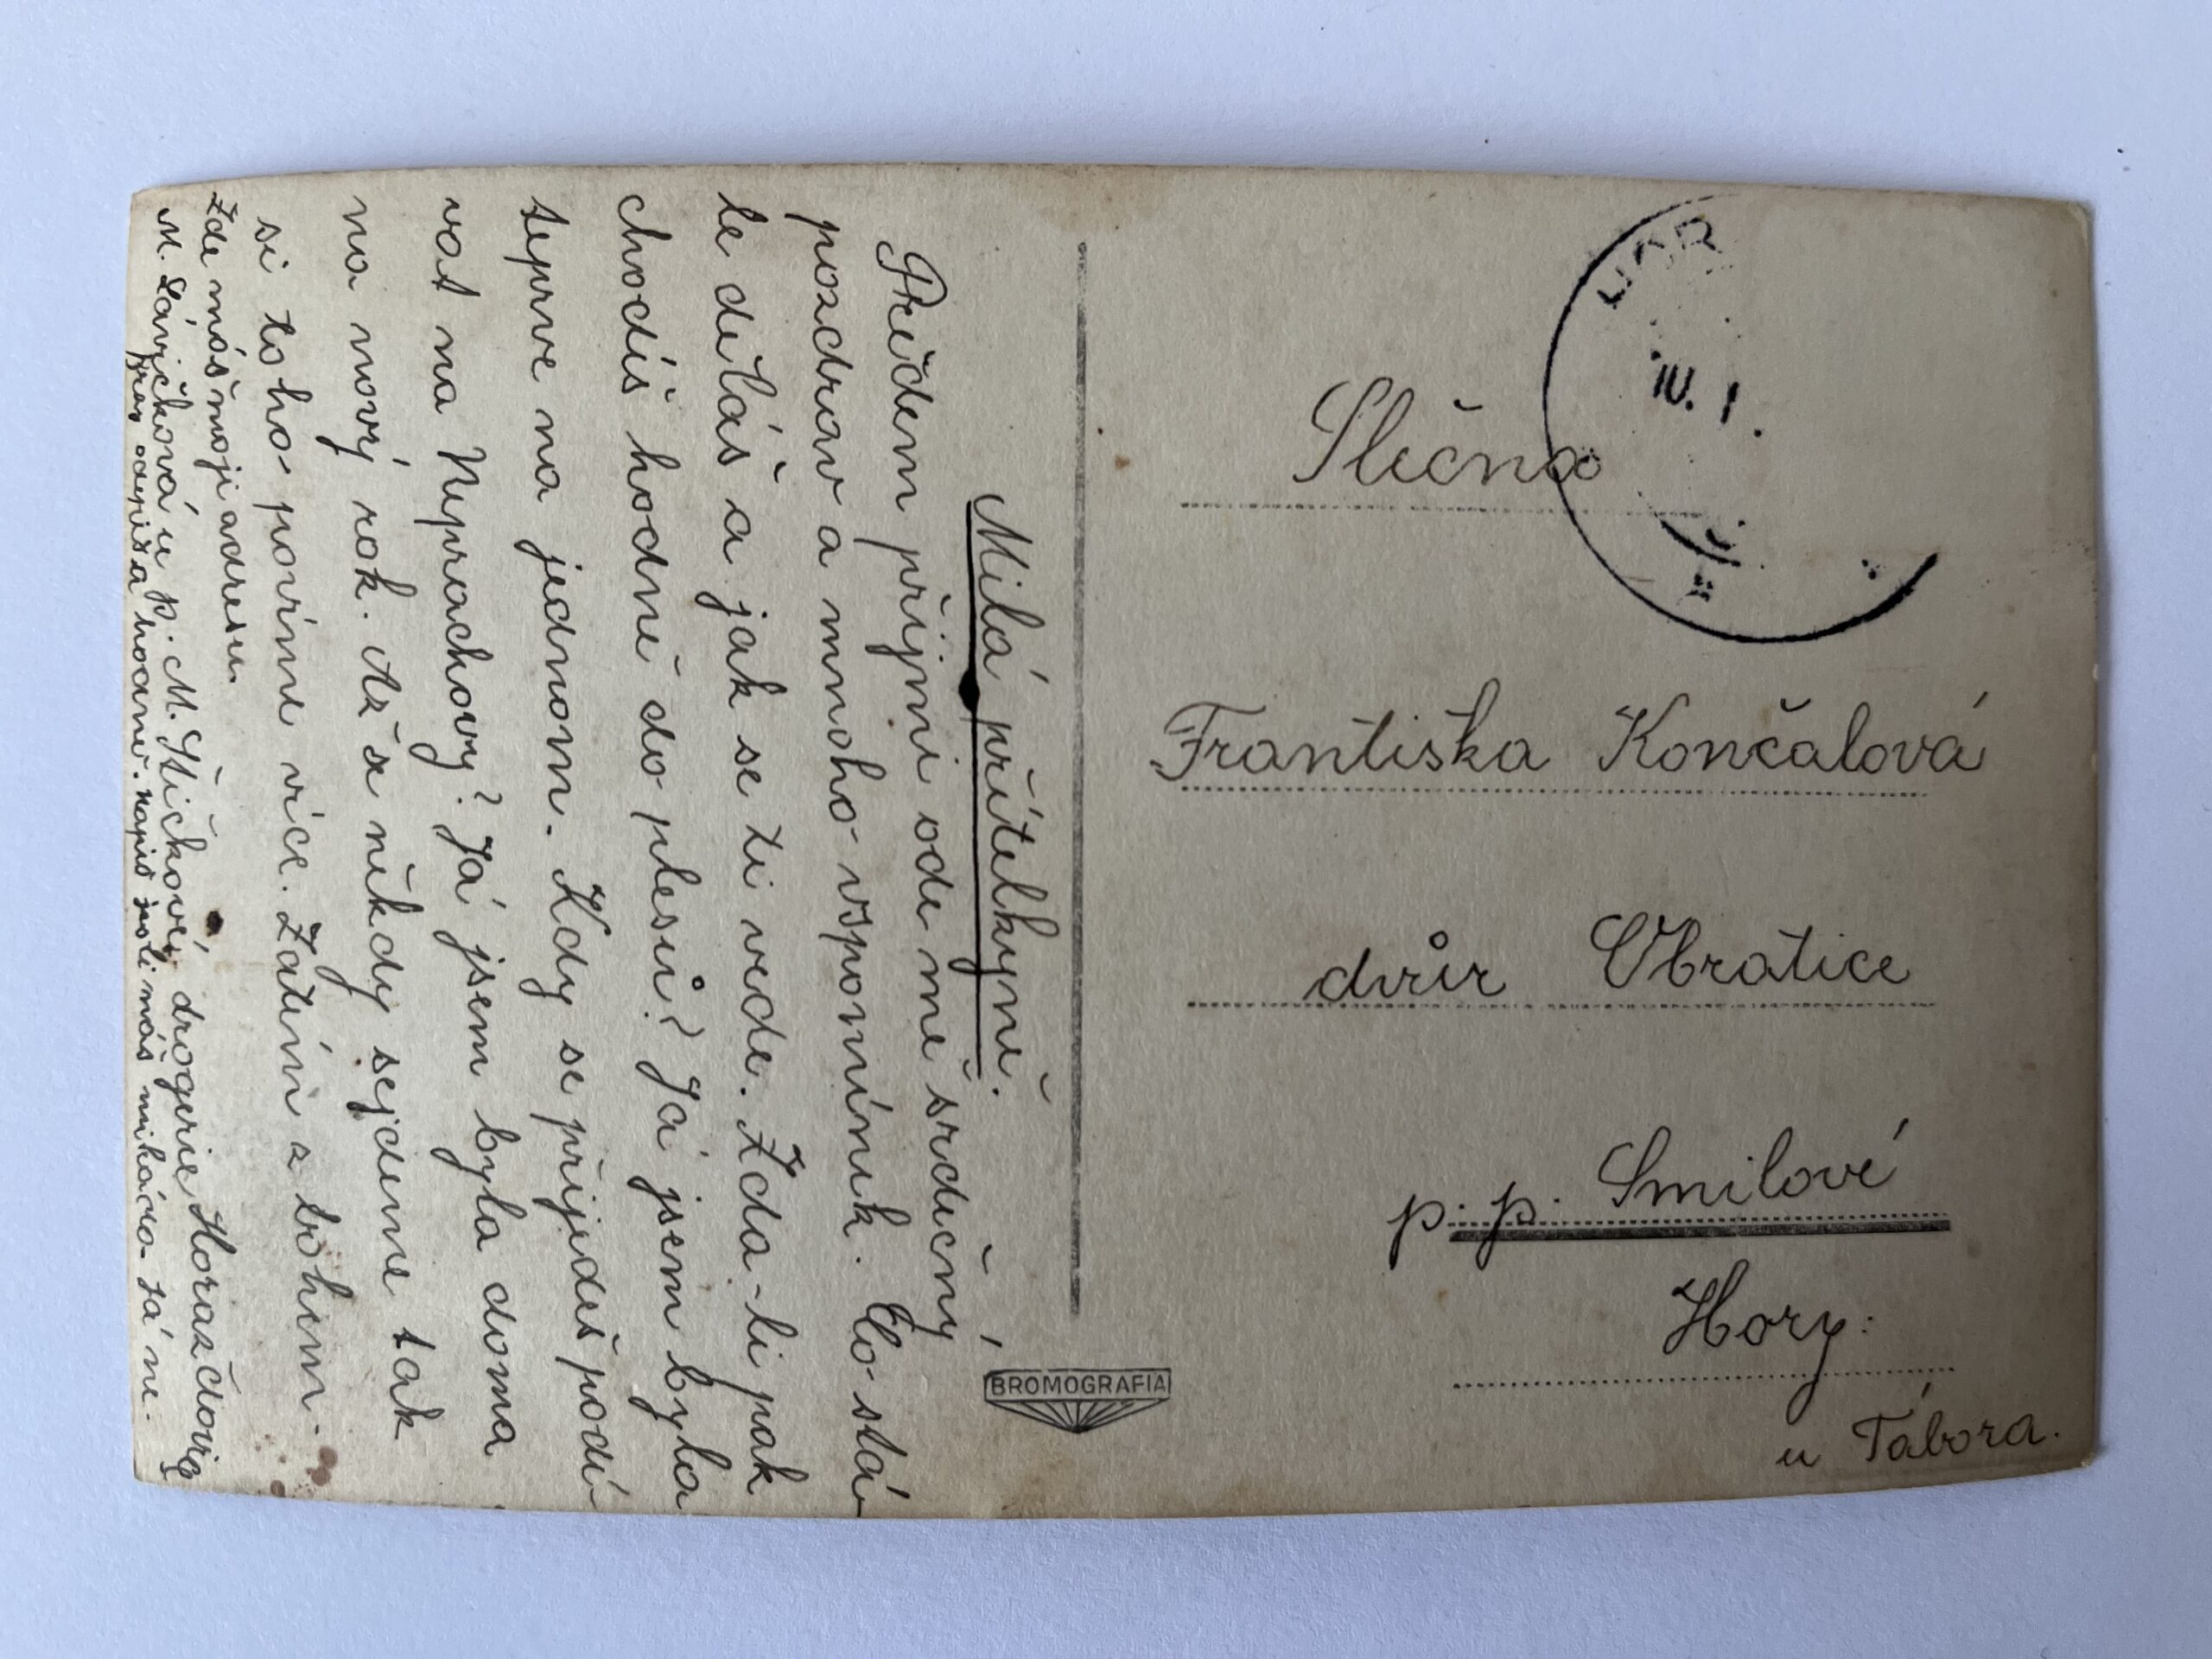 Milá přítelkyně.
Předem přijmi ode mně srdečný
pozdrav a mnoho vspomínek. Co stá-
le děláš a jak se ti vede. Zda-li pak
chodíš hodně do plesů? Já jsem byla
teprve na jednom. Kdy se přijedeš podí-
vat na Neprachovy? Já jsem byla doma
na nový rok. Až se někdy sejdeme tak
si toho povíme více. Zatím z bohem.
Zde máš moji adresu.
M. Lávičková u p. M. Stičkové drogerie Horažďovice
odepiš a hodně. napiš jestli máš někoho já ne.
BROMOGRAFIA
HOR
IV. 1
Slečna
Františka Končalová
dvůr Obratice
p. p. Smilové
Hory:
u Tábora.